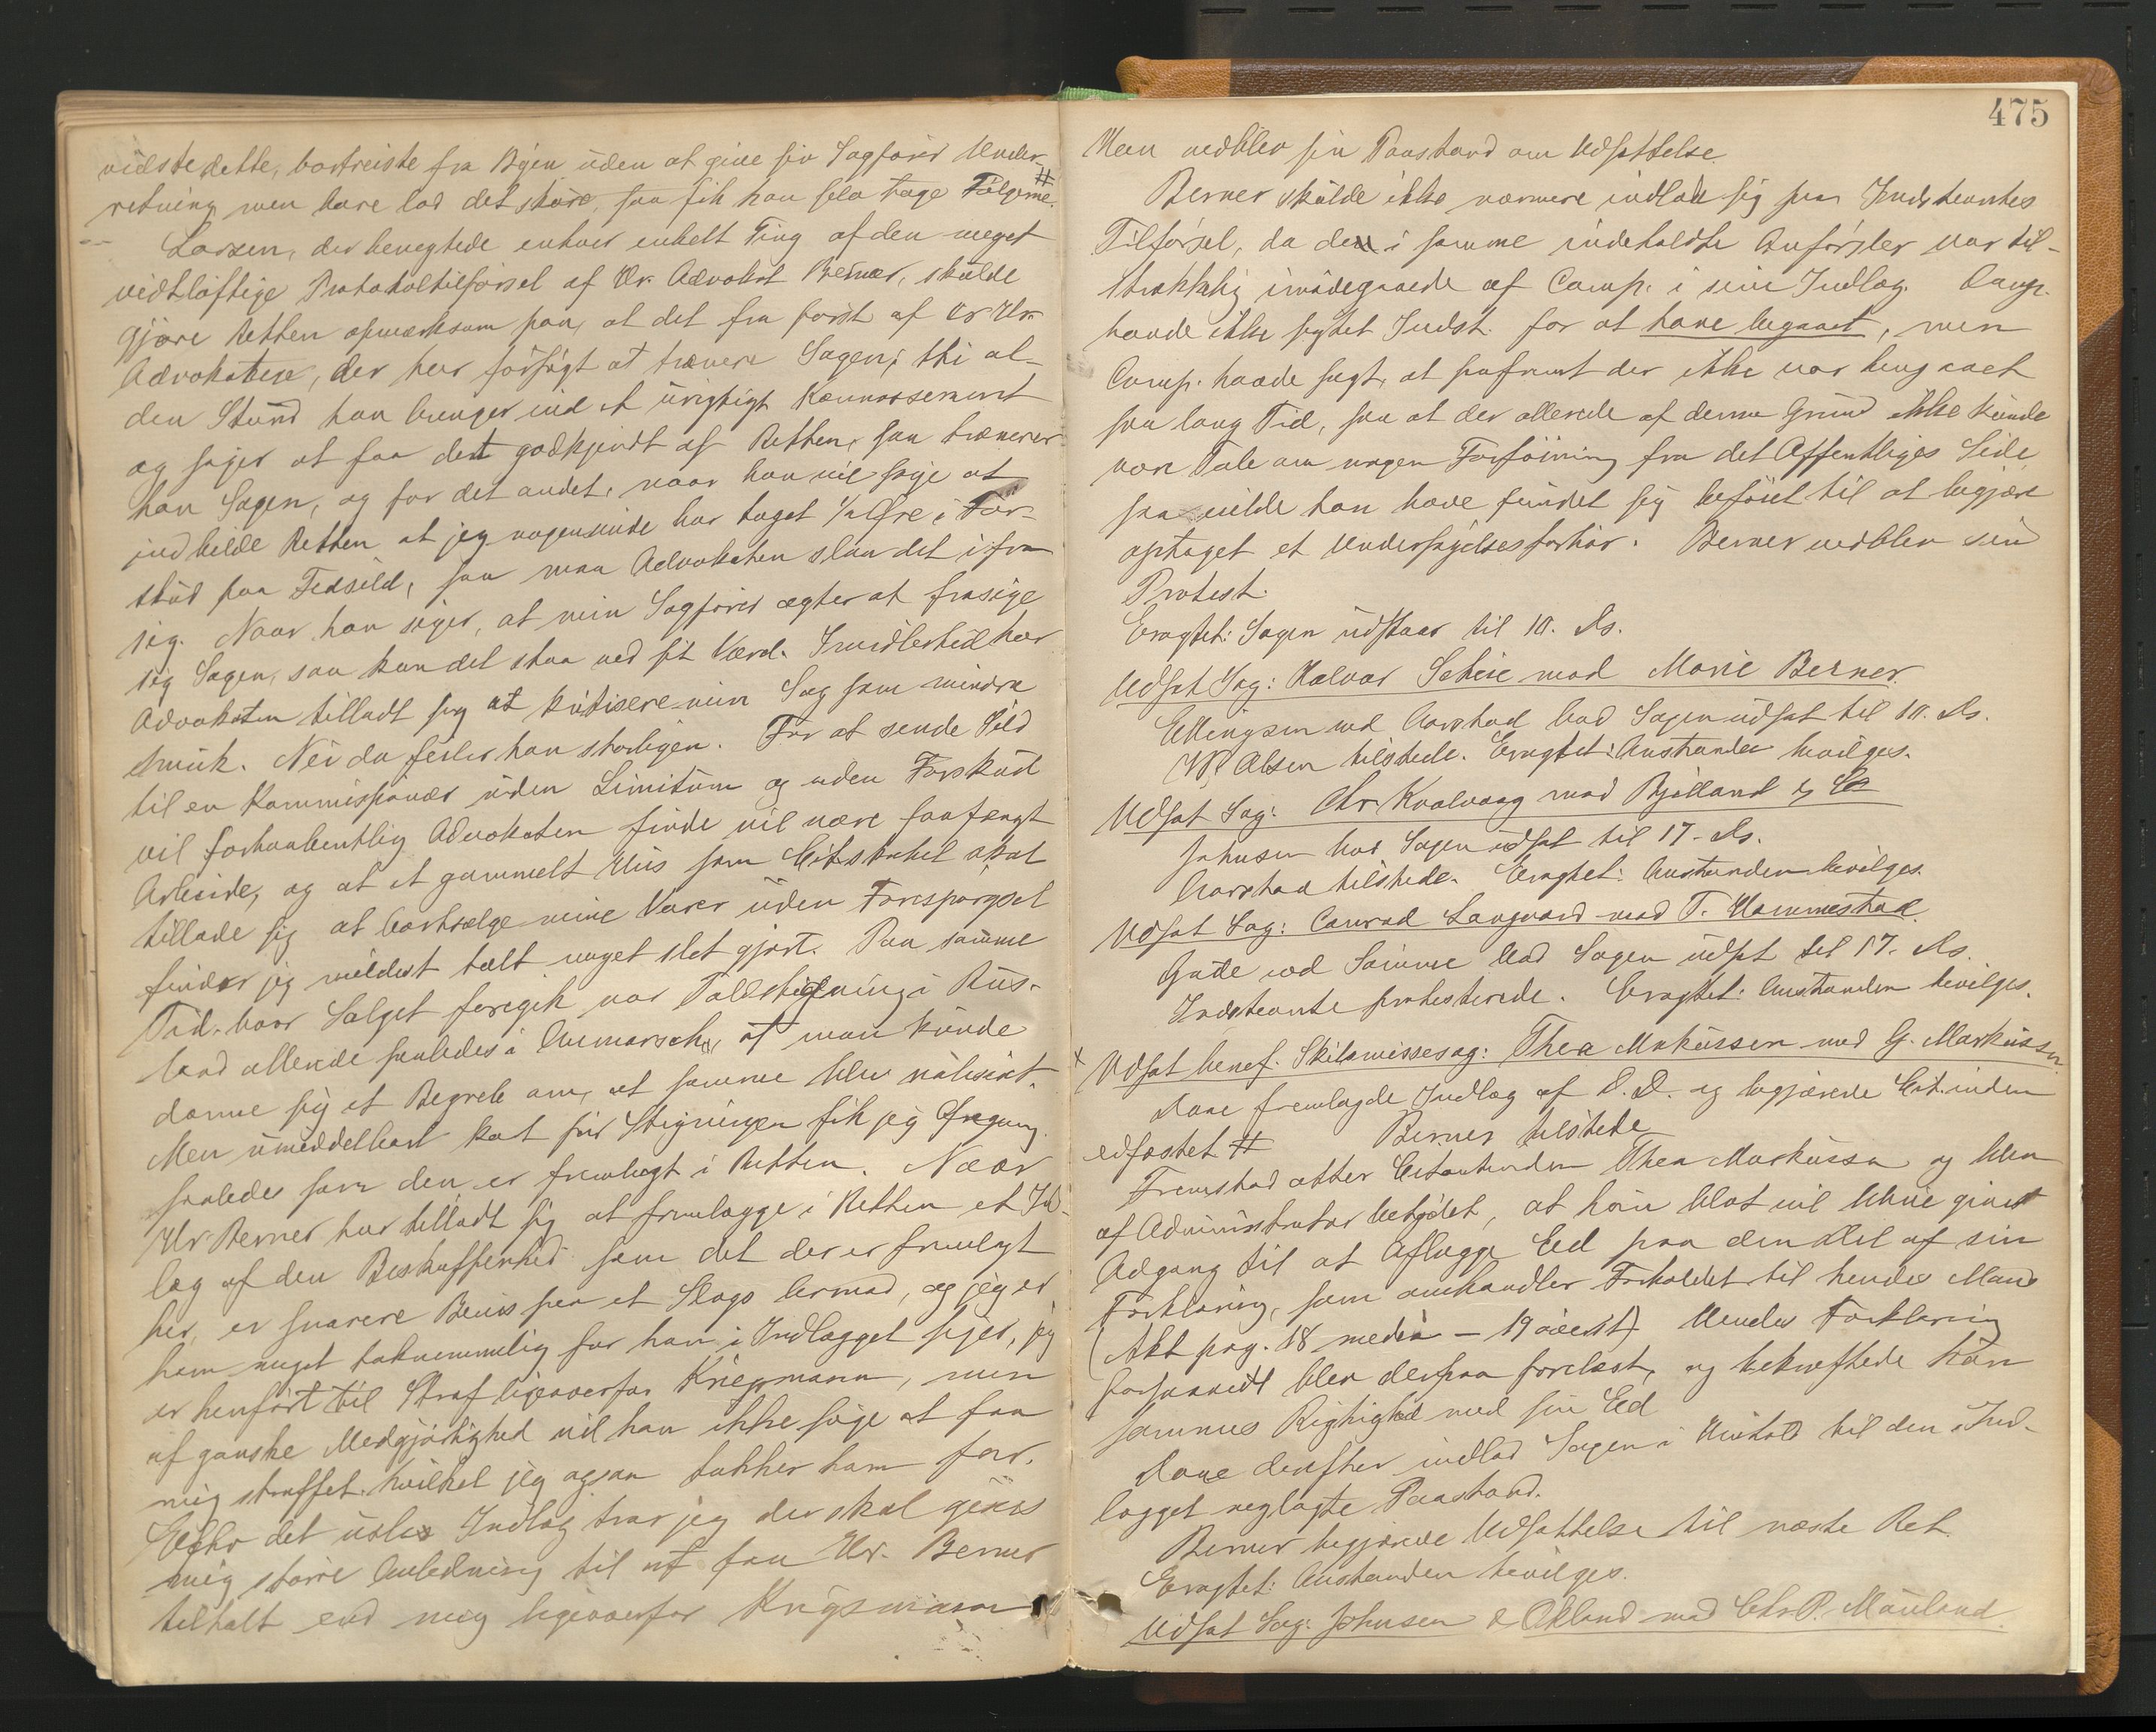 vidste dette, bortreiste fra Byen uden at give sin Sagfører Under-
retning men bare lod det skure, saa fik han selv tage Følgerne. #
Larsen, der benegtede enhver enkelt Ting af den meget
vidtløftige Protokoltilførsel af Hr. Advokat Berner, skulde
gjøre Retten opmærksom paa, at det fra først af er Hr.
Advokaten, der har forsøgt at trænere Sagen; thi al-
den Stund han bringer ind et urigtigt Konnossement
og søger at faa det godkjendt af Retten, saa trænerer
han Sagen, og for det andet, naar han vil søge at
indbilde Retten at jeg nogensinde har taget 1/2 Øre i For-
skud paa Fedsild, saa maa Advokaten slaa det ifra
sig. Naar han siger, at min Sagfører agter at frasige
sig Sagen, saa kan det staa ved sit Værd. Imidlertid har
Advokaten tilladt sig at kritisere min Sag som mindre
smuk. Nei da feiler han storligen. For at sende Sild
til en Kommissionær uden Limitum og uden Forskud
vil forhaabentlig Advokaten finde vil være forfængt
Arbeide, og at et gammelt Hus som Citskabet skal
tillade sig at bortsælge mine Varer uden Forespørgsel
finder jeg mildest talt noget slet gjort. Paa samme
Tid hvor Salget foregik var Toldstigning i Rus-
land allerede saaledes i Anmarsch, at man kunde
danne sig et Begreb om, at samme blev realiseret.
Men umiddelbart kort før Stigningen fik jeg
saaledes som den er fremlagt i Retten. Naar
Hr Berner har tilladt sig at fremlægge i Retten et Ind-
læg af den Beskaffenhed som det der er fremlagt
her, er snarere Bevis paa et Slags Armod, og jeg er
ham meget taknemmelig for han i Indlægget siger, jeg
er henført til Straf ligeoverfor Kriegsmann, men
af ganske Medgjørlighed vil han ikke søge at faa
mig straffet, hvilket jeg ogsaa takker ham for.
Efter det usle Indlæg tror jeg der skal gives
mig større Anledning til at faa Hr. Berner
tiltalt end mig ligeoverfor Krigsmann
475
Han vedblev sin Paastand om Udsættelse.
Berner skulde ikke nærmere indlade sig paa Indstevntes
Tilførsel, da de i samme indeholdte Anførsler var til-
strækkelig imødegaaede af Comp. i sine Indlæg. Comp.
havde ikke sigtet Indst. for at have begaaet, men
Comp. havde sagt, at saafremt der ikke var hengaaet
saa lang Tid, saa at der allerede af denne Grund ikke kunde
være Tale om nogen Forføining fra det Offentliges Side
saa vilde han have fundet sig beføiet til at begjære
optaget et Undersøgelsesforhør. Berner vedblev sin
Protest.
Eragtet: Sagen udstaar til 10. Ds.
Udsat Sag: Halvor Scheie mod Marie Berner.
Ellingsen ved Aarstad bad Sagen udsat til 10. Ds.
W. Olsen tilstede. Eragtet: Anstanden bevilges.
Udsat Sag: Chr. Kvalvaag mod Bjelland & Co
Johnsen bad Sagen udsat til 17. Ds.
Aarstad tilstede. Eragtet: Anstanden bevilges.
Udsat Sag: Conrad Langaard mod T. Hammestad.
Gude ved Sømme bad Sagen udsat til 17. Ds.
Indstevnte protesterede. Eragtet: Anstanden bevilges.
x Udsat benef. Skilsmissesag: Thea Makussen mod G. Markussen.
Daae fremlagde Indlæg af D. D. og begjærede Cit.inden
edfæstet # Berner tilstede
Fremstod atter Citantinden Thea Markussen og blev
af Administrator betydet, at hun blot vil blive givet
Adgang til at aflægge Ed paa den Del af sin
Forklaring, som omhandler Forholdet til hendes Mand
(Akt pag. 18 medio – 19 øverst). Hendes Forklaring
forsaavidt blev derpaa forelæst, og bekræftede hun
sammes Rigtighed med sin Ed
Daae derefter indlod Sagen i Henhold til den i Ind-
lægget nedlagte Paastand.
Berner begjærede Udsættelse til næste Ret.
Eragtet: Anstanden bevilges.
Udsat Sag: Johnsen & Økland mod Chr. P. Mauland.